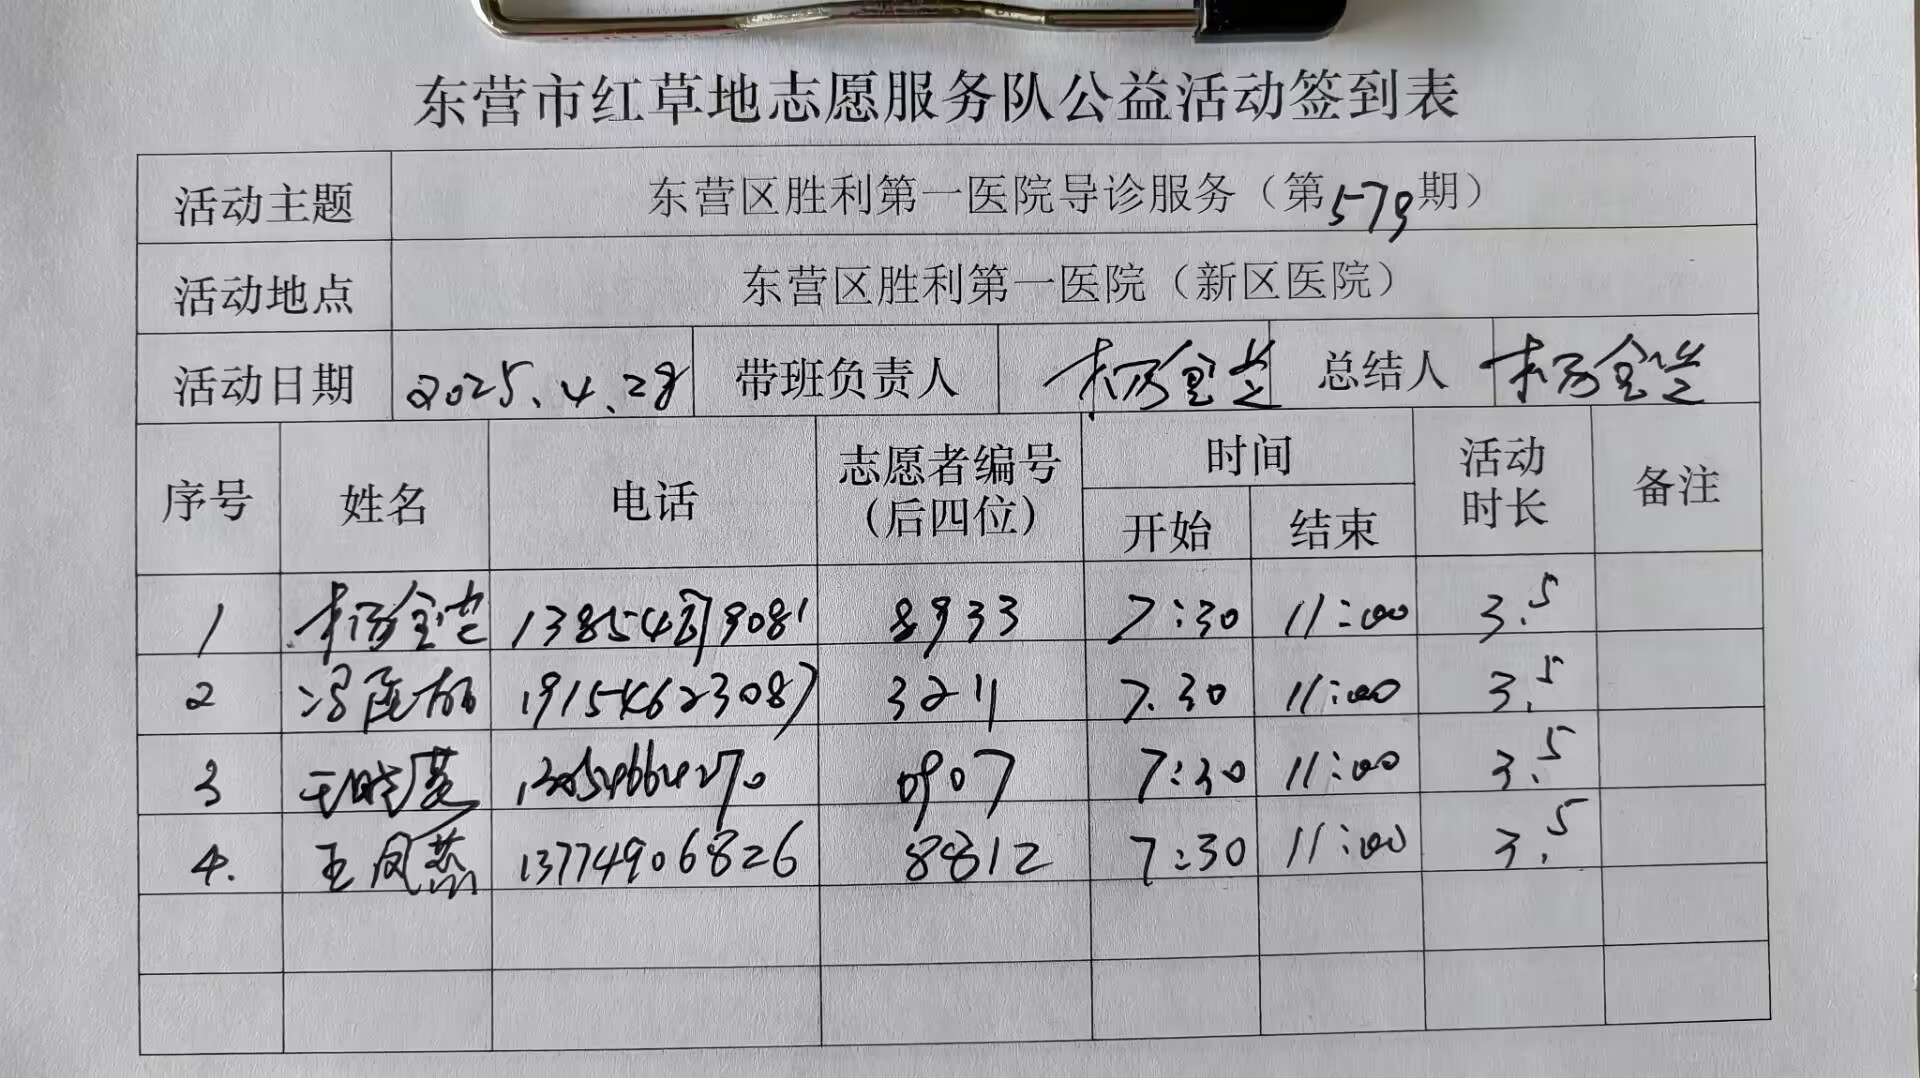 东营市红草地志愿服务队公益活动签到表
活动主题 东营区胜利第一医院导诊服务（第579期）
活动地点 东营区胜利第一医院（新区医院）
活动日期 2025.4.28 带班负责人 杨宝芝 总结人 杨宝芝
序号 姓名 电话 志愿者编号（后四位） 时间 开始 结束 活动时长 备注
1 杨宝芝 8933 7:30 11:00 3.5
2 19154623087 3211 7.30 11:00 3.5
3 王晓燕 13054664270 0907 7:30 11:00 3.5
4. 王凤燕 13774906826 8812 7:30 11:00 3.5